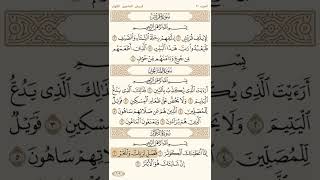 سُورَةُ قُرَيْشٍ
بِسْمِ اللَّهِ الرَّحْمَٰنِ الرَّحِيمِ
لِإِيلَافِ قُرَيْشٍ ۝١ إِيلَافِهِمْ رِحْلَةَ الشِّتَاءِ وَالصَّيْفِ ۝٢
فَلْيَعْبُدُوا رَبَّ هَٰذَا الْبَيْتِ ۝٣ الَّذِي أَطْعَمَهُم
مِّن جُوعٍ وَآمَنَهُم مِّنْ خَوْفٍ ۝٤
سُورَةُ الْمَاعُونِ
بِسْمِ اللَّهِ الرَّحْمَٰنِ الرَّحِيمِ
أَرَأَيْتَ الَّذِي يُكَذِّبُ بِالدِّينِ ۝١ فَذَٰلِكَ الَّذِي يَدُعُّ
الْيَتِيمَ ۝٢ وَلَا يَحُضُّ عَلَىٰ طَعَامِ الْمِسْكِينِ ۝٣ فَوَيْلٌ
لِّلْمُصَلِّينَ ۝٤ الَّذِينَ هُمْ عَن صَلَاتِهِمْ سَاهُونَ ۝٥
الَّذِينَ هُمْ يُرَاءُونَ ۝٦ وَيَمْنَعُونَ الْمَاعُونَ ۝٧
سُورَةُ الْكَوْثَرِ
بِسْمِ اللَّهِ الرَّحْمَٰنِ الرَّحِيمِ
إِنَّا أَعْطَيْنَاكَ الْكَوْثَرَ ۝١ فَصَلِّ لِرَبِّكَ وَانْحَرْ ۝٢
إِنَّ شَانِئَكَ هُوَ الْأَبْتَرُ ۝٣